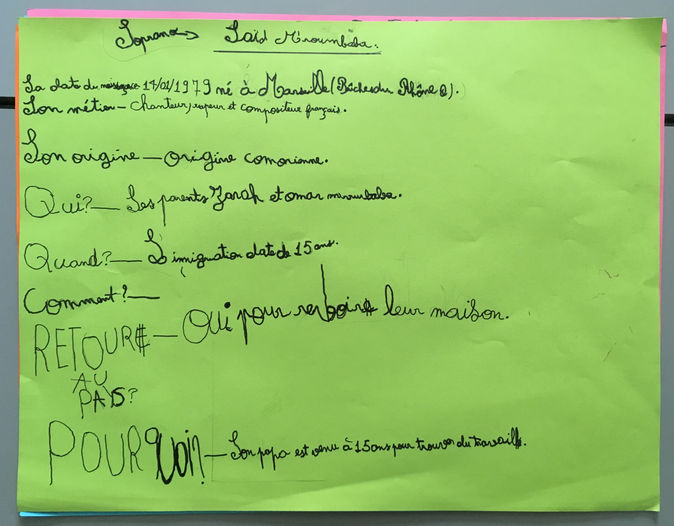 Soprano → Saïd M'roumbaba.
Sa date du naissance 14/01/1979 né à Marseille (Bûches du Rhône).
Son métier – chanteur, rapeur et compositeur français.
Son origine – origine comorienne.
Qui? – Ses parents Zarah et omar mroumbaba.
Quand? – L'imigration date de 15 ans.
Comment? –
RETOUR – Oui pour revoire leur maison.
AU
PAYS?
POURQUOI? – Son papa est venu à 15 ans pour trouver du travaille.